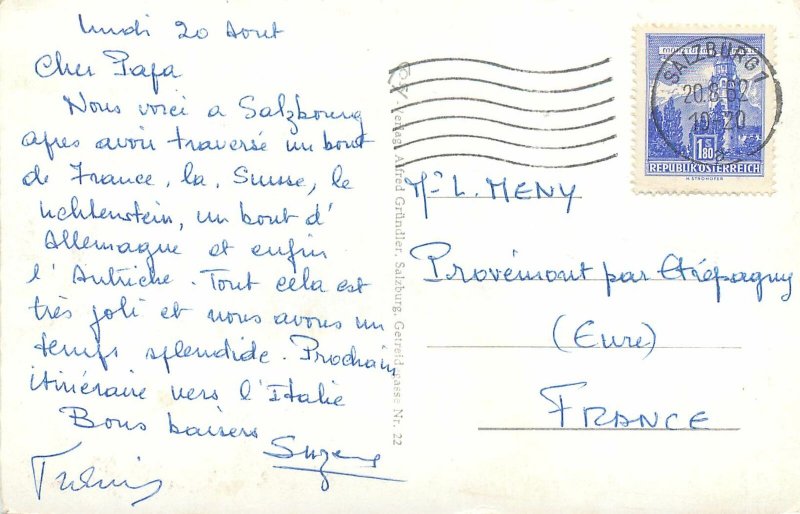 lundi 20 Aout
Cher Papa
Nous voici à Salzbourg
apres avoir traversé un bout
de France, la Suisse, le
lichtenstein, un bout d'
Allemagne et enfin
l'Autriche. Tout cela est
très joli et nous avons un
temps splendide. Prochain
itinéraire vers l'Italie
Bons baisers
Verlag Alfred Gründler, Salzburg, Getreidegasse Nr. 22
SALZBURG 1
20.8.62
1.80
REPUBLIK ÖSTERREICH
H. STROHOFER
L. MENY
Provémont par Etrépagny
(Eure)
FRANCE